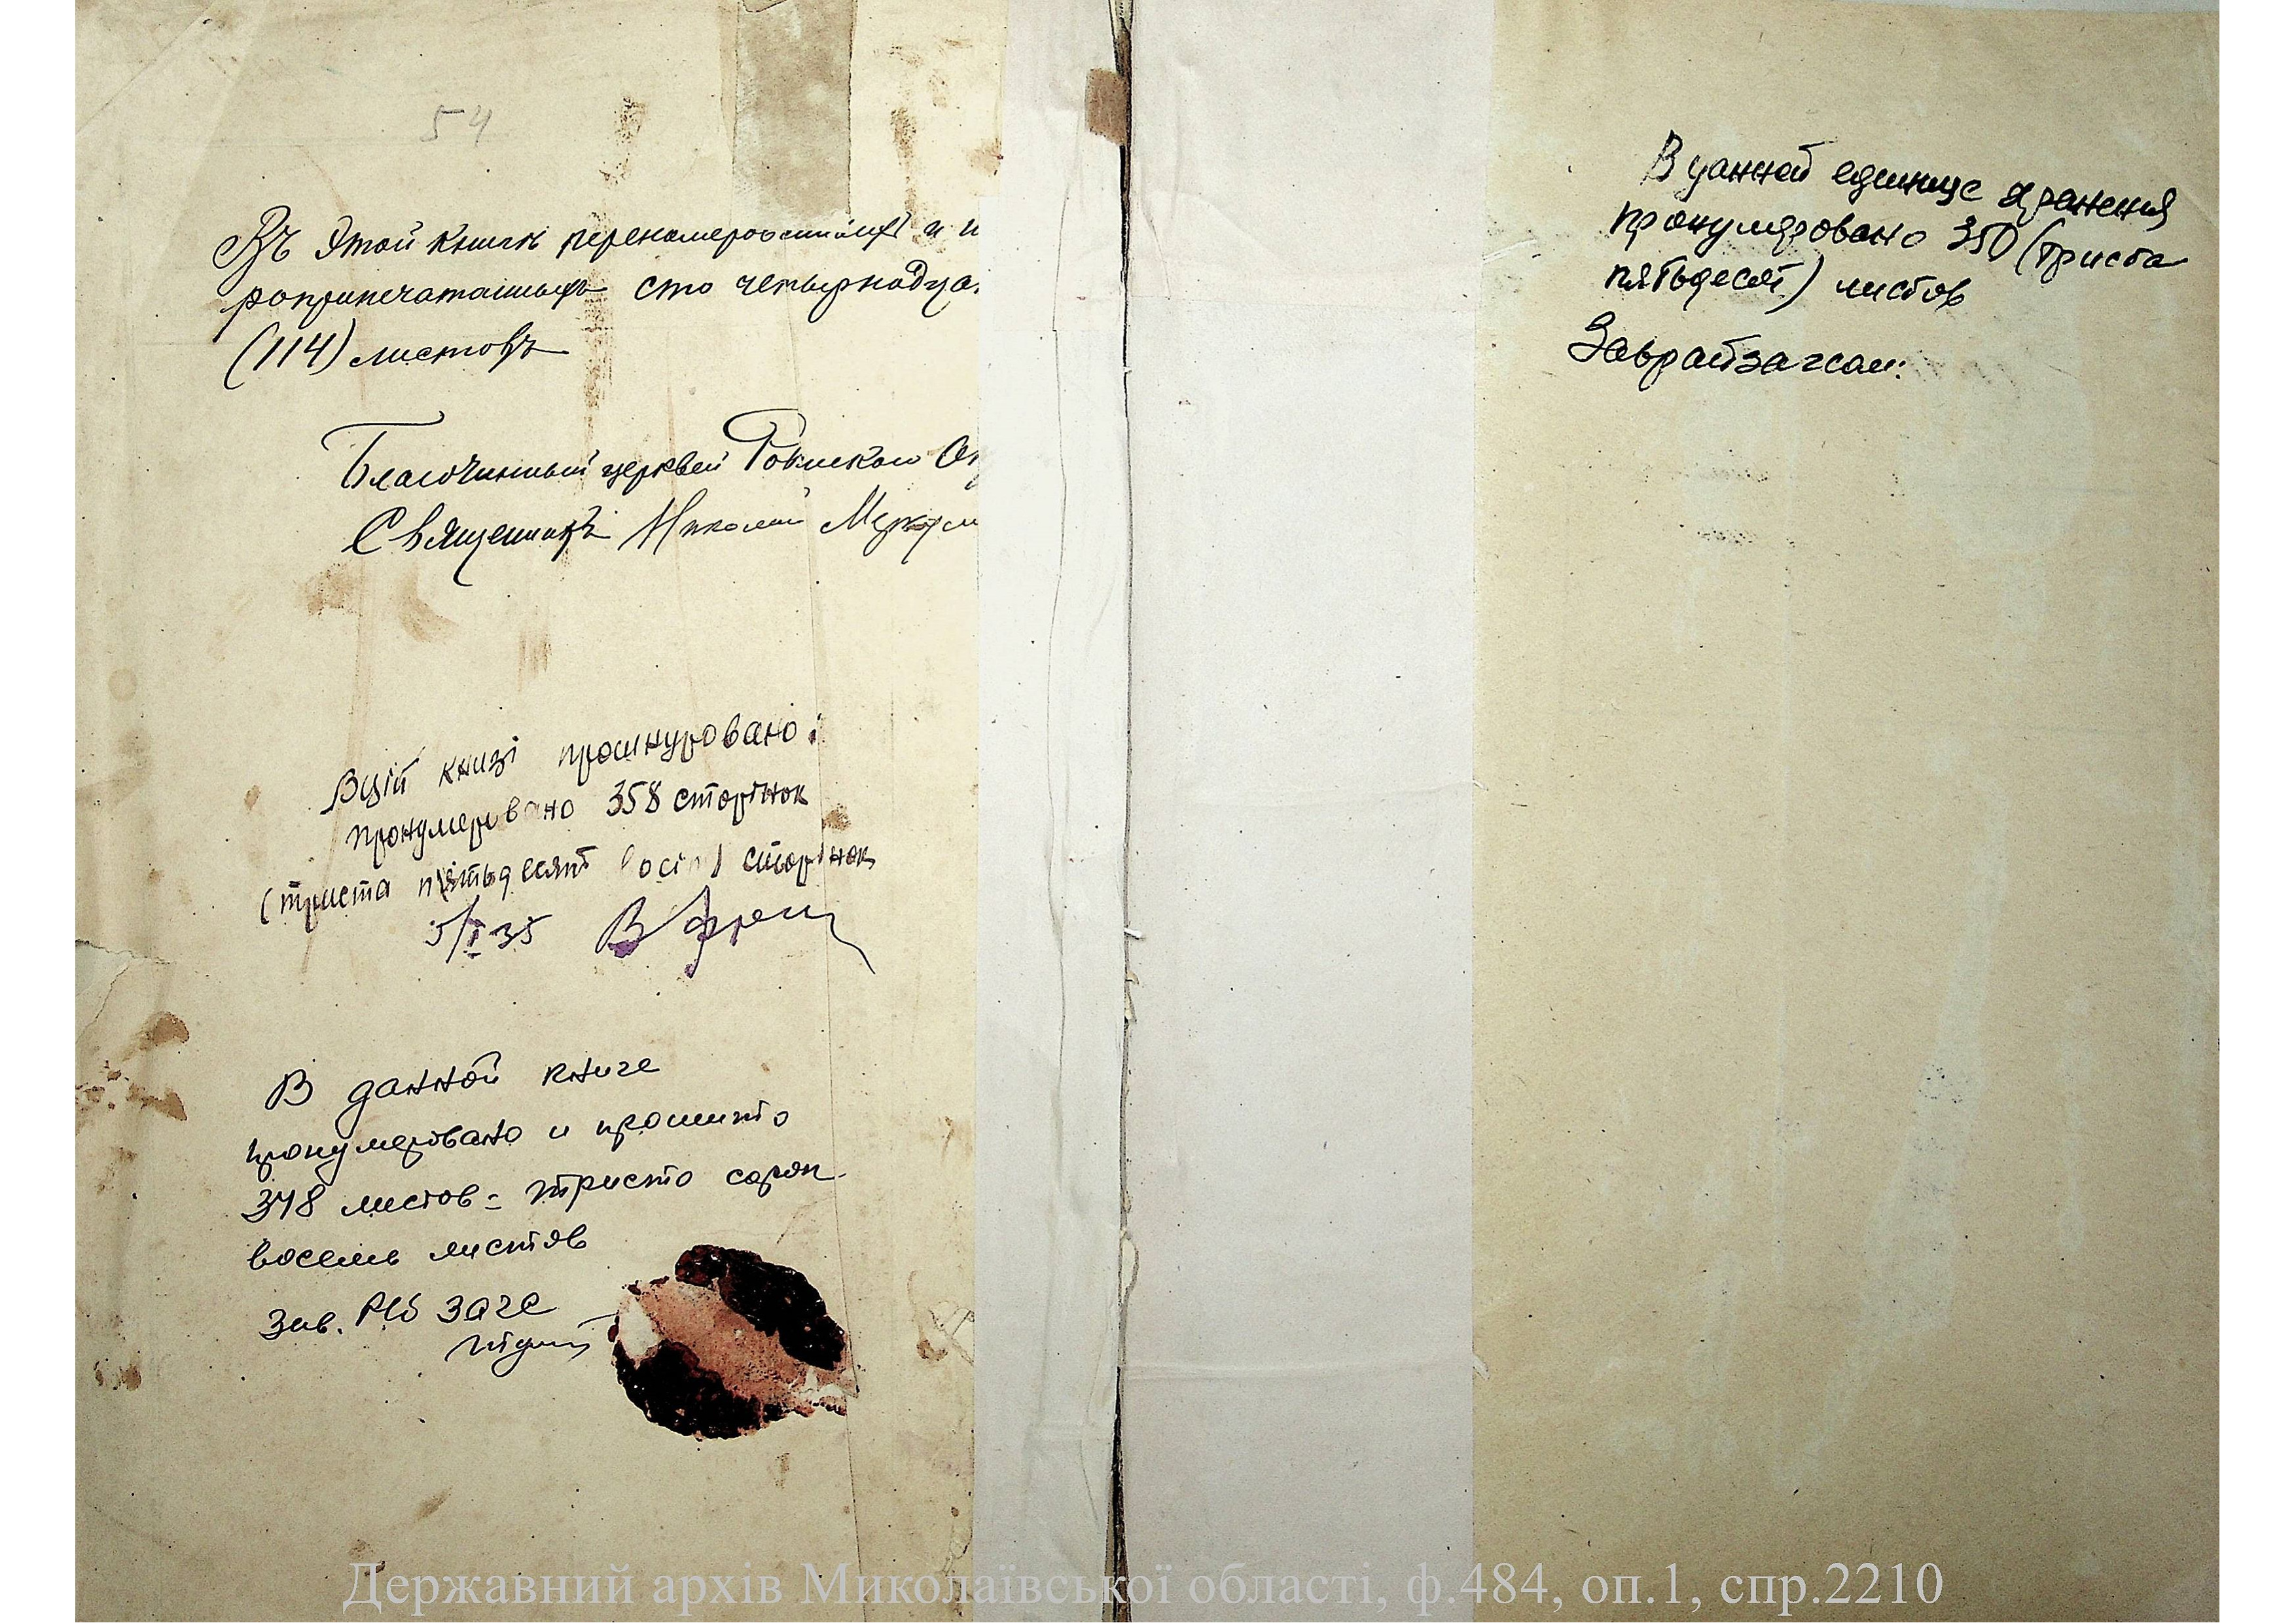 54
Въ этой книгѣ перенумерованныхъ и п
роприпечатанныхъ сто четырнадца
(114) листовъ
Благочинный церквей Ок
Священникъ Николай
В цій книзі прошнуровано і
пронумеровано 358 сторінок
(триста пятьдесят восім) сторінок
5/I 35
В данной книге
пронумеровано и прошито
348 листов = тристо сорок
восемь листов
Зав. загс
В данной единице хранения
пронумеровано 350 (триста
пятьдесят) листов
Заврайзагсом:
Державний архів Миколаївської області, ф.484, оп.1, спр.2210